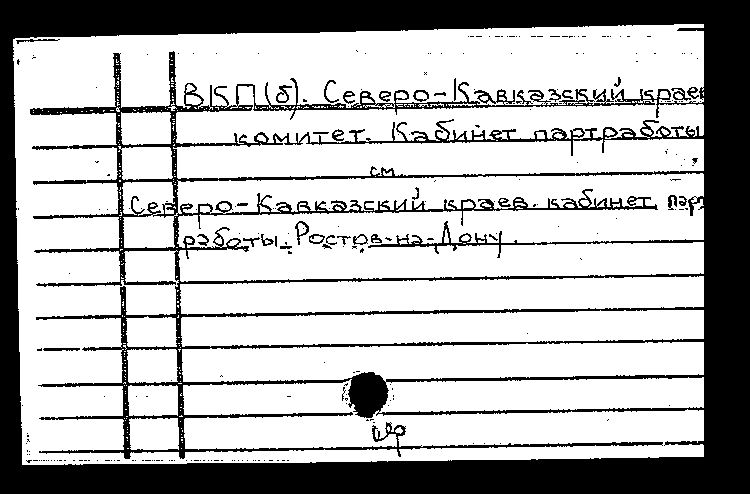 ВКП(б). Северо-Кавказский краев
комитет. Кабинет партработы
см.
Северо-Кавказский краев. кабинет парт
работы. Ростов-на-Дону.